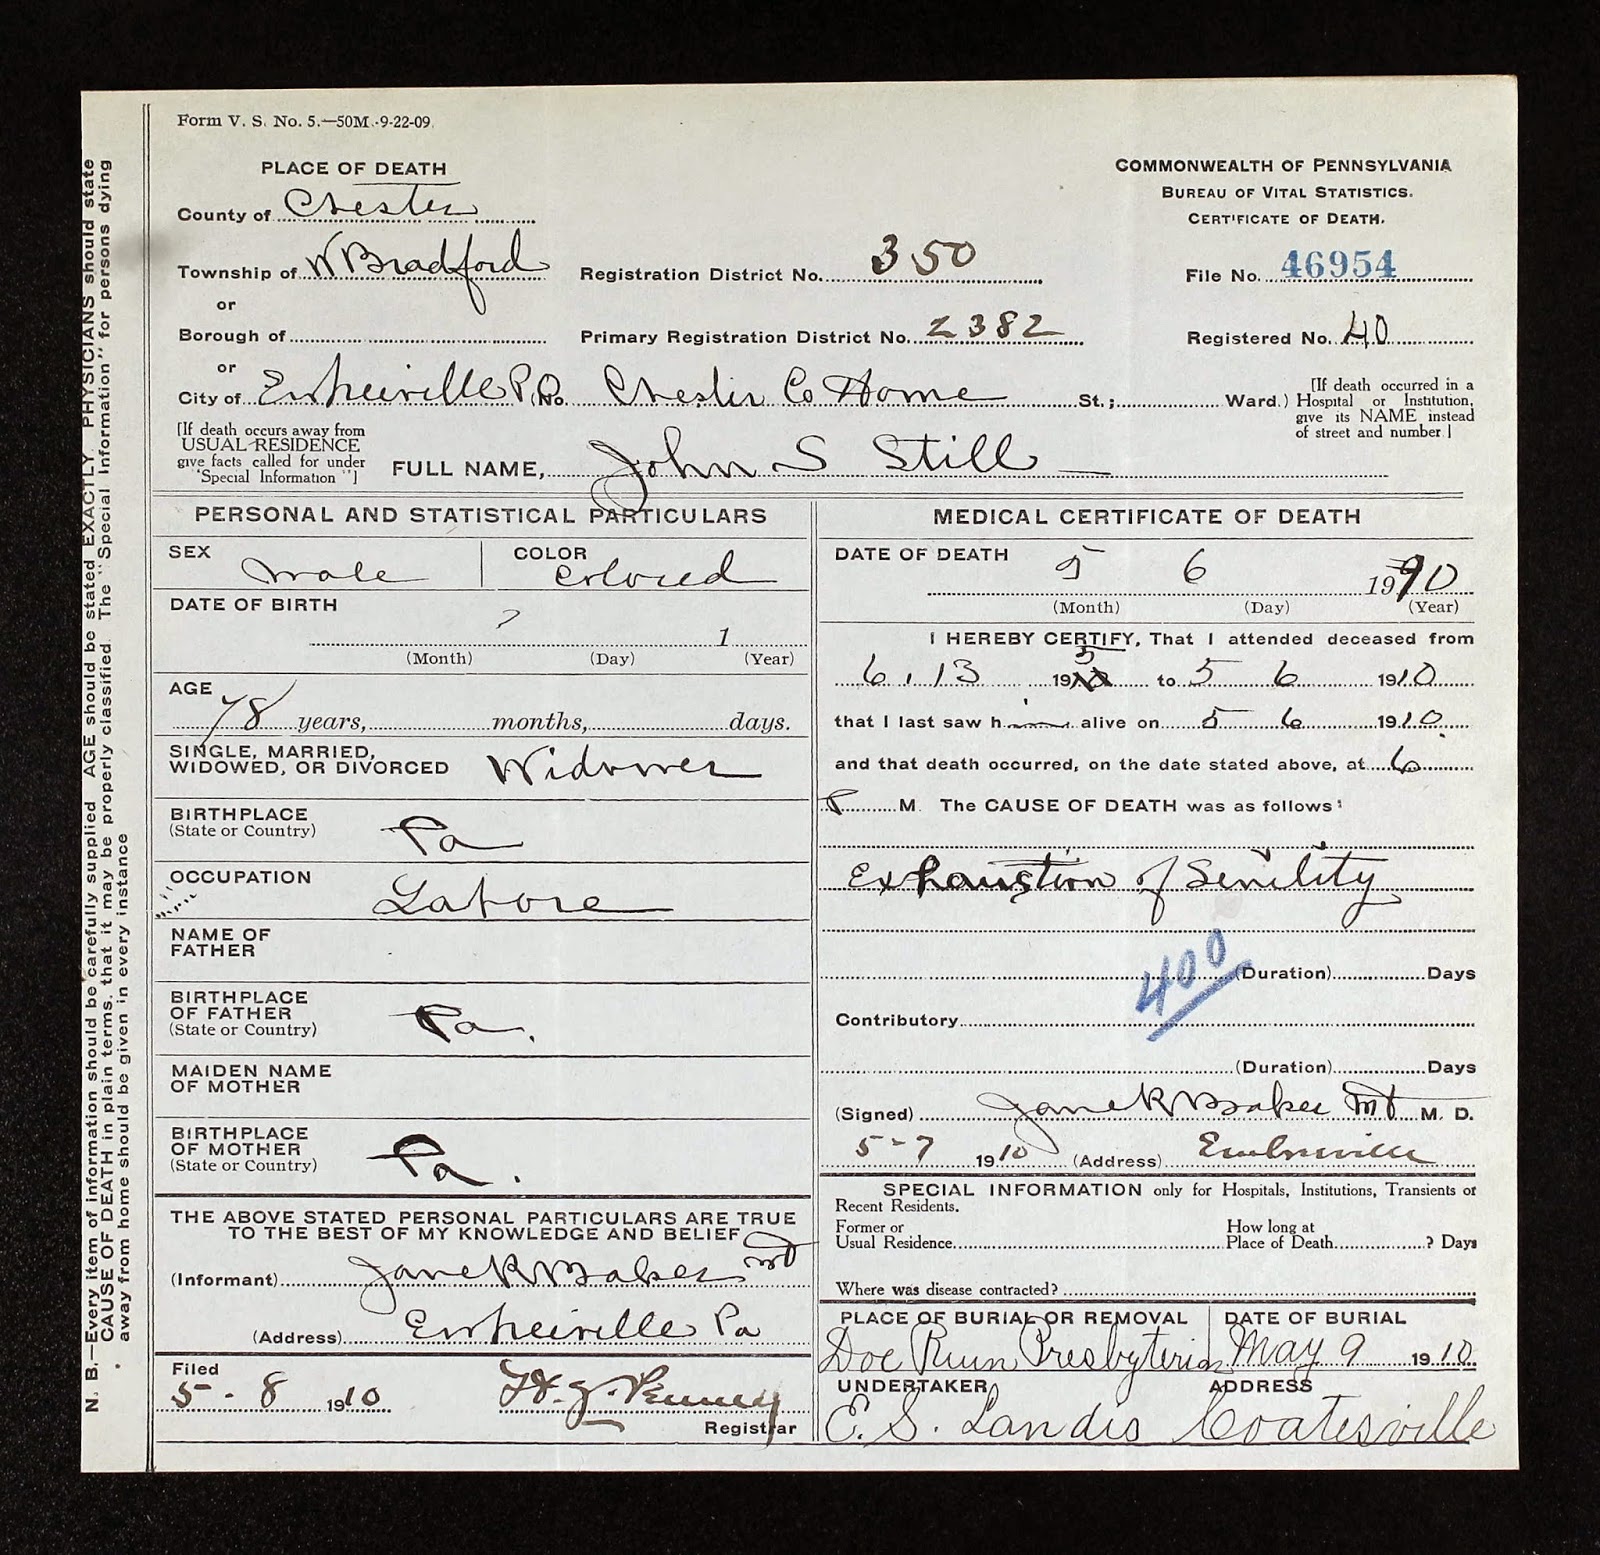 Form V. S. No. 5.—50M.-9-22-09.
PLACE OF DEATH
County of Chester
Township of W Bradford
or
Borough of
or
City of Embreeville P.O. No. Chester Co Home St.; Ward.)
[If death occurs away from
USUAL RESIDENCE
give facts called for under
"Special Information"]
COMMONWEALTH OF PENNSYLVANIA
BUREAU OF VITAL STATISTICS.
CERTIFICATE OF DEATH.
Registration District No. 350
File No. 46954
Primary Registration District No. 2382
Registered No. 40
[If death occurred in a
Hospital or Institution,
give its NAME instead
of street and number.]
FULL NAME, John S Still
PERSONAL AND STATISTICAL PARTICULARS
SEX male
COLOR Colored
DATE OF BIRTH
? 1
(Month) (Day) (Year)
AGE
78 years, months, days.
SINGLE, MARRIED,
WIDOWED, OR DIVORCED Widower
BIRTHPLACE
(State or Country) Pa
OCCUPATION
Labore
NAME OF
FATHER
BIRTHPLACE
OF FATHER
(State or Country) Pa.
MAIDEN NAME
OF MOTHER
BIRTHPLACE
OF MOTHER
(State or Country) Pa.
THE ABOVE STATED PERSONAL PARTICULARS ARE TRUE
TO THE BEST OF MY KNOWLEDGE AND BELIEF
(Informant) Jane R Baker MD
(Address) Embreeville Pa
Filed
5-8 1910
Penney
Registrar
MEDICAL CERTIFICATE OF DEATH
DATE OF DEATH 5 6 1910
(Month) (Day) (Year)
I HEREBY CERTIFY, That I attended deceased from
6. 13 190 5 to 5 6 1910
that I last saw him alive on 5 6 1910
and that death occurred, on the date stated above, at 6
P M. The CAUSE OF DEATH was as follows:
Exhaustion of Senility
400
(Duration) Days
Contributory
(Duration) Days
(Signed) Jane R Baker MD M. D.
5-7 1910 (Address) Embreeville
SPECIAL INFORMATION only for Hospitals, Institutions, Transients or
Recent Residents.
Former or
Usual Residence
How long at
Place of Death ? Days
Where was disease contracted?
PLACE OF BURIAL OR REMOVAL
Doe Run Presbyterian
DATE OF BURIAL
May 9 1910
UNDERTAKER
E. S. Landis
ADDRESS
Coatesville
N. B.—Every item of information should be carefully supplied. AGE should be stated EXACTLY. PHYSICIANS should state
CAUSE OF DEATH in plain terms, that it may be properly classified. The "Special Information" for persons dying
away from home should be given in every instance